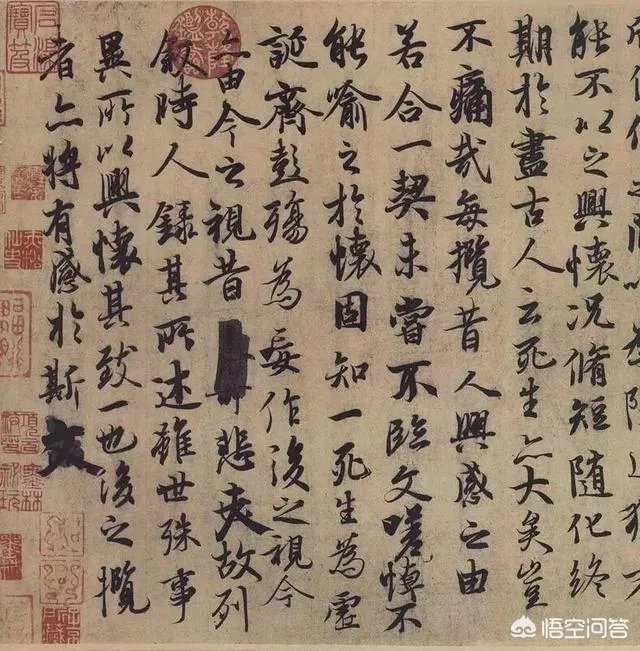 能不以之興懷況脩短隨化終
期於盡古人云死生亦大矣豈
不痛哉每攬昔人興感之由
若合一契未嘗不臨文嗟悼不
能喻之於懷固知一死生為虛
誕齊彭殤為妄作後之視今
亦由今之視昔悲夫故列
敘時人錄其所述雖世殊事
異所以興懷其致一也後之攬
者亦將有感於斯文
悟空问答